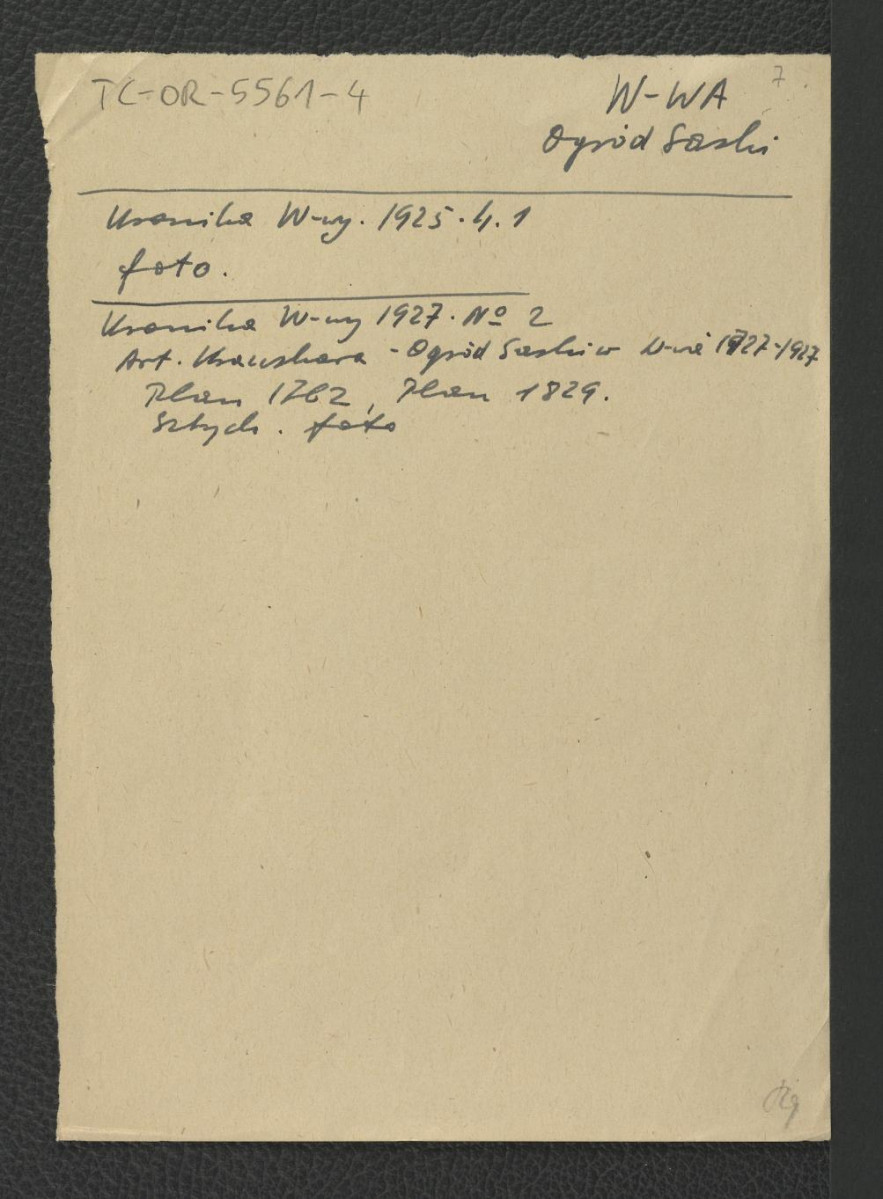 TC-OR-5561-4
7
W-WA
Ogród Saski
Kronika W-wy. 1925. 4. 1
foto.
Kronika W-wy 1927. No 2
Art. Kraushara - Ogród Saski w W-wie 1727-1927
Plan 1762, Plan 1829.
Sztych. foto